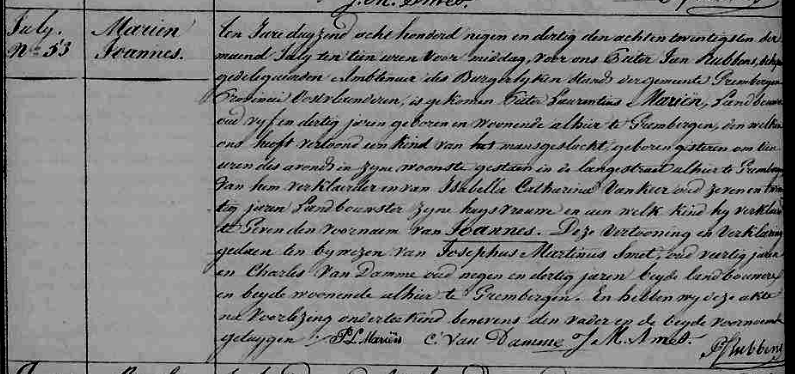 July.
N° 53
Mariën
Joannes.
ten Jare duyzend acht honderd negen en dertig den achten twintigsten der
maend July ten tien uren voor middag, voor ons Pieter Jan Rubbens,
gedelegueerden Ambtenaer des Burgerlyken Stands der gemeente Grembergen
Provincie Oostvlaenderen, is gekomen Pieter Laurentius Mariën, Landbouwer
oud vyf en dertig jaren geboren en woonende alhier te Grembergen, den welken
ons heeft vertoond een kind van het mansgeslacht, geboren gisteren om tien
uren des avonds in zyne woonste gestaen in de langestraet alhier te Grembergen
van hem verklaerder en van Isabella Catharina Van Kier oud zeven en twin
tig jaren Landbouwster zyne huysvrouwe en aen welk kind hy verklaerd
te Geven den voornaem van Joannes. Deze Vertooning en Verklaring
gedaen ten bywezen van Josephus Martinus Smet, oud veertig jaren
en Charles Van Damme oud negen en dertig jaren beyde landbouwers
en beyde woonende alhier te Grembergen. En hebben wy deze akte
na Voorlezing onderteekend benevens den vader en de beyde voornoemde
getuygen. P. L. Mariën C. Van Damme J. M. Smet. P J Rubbens